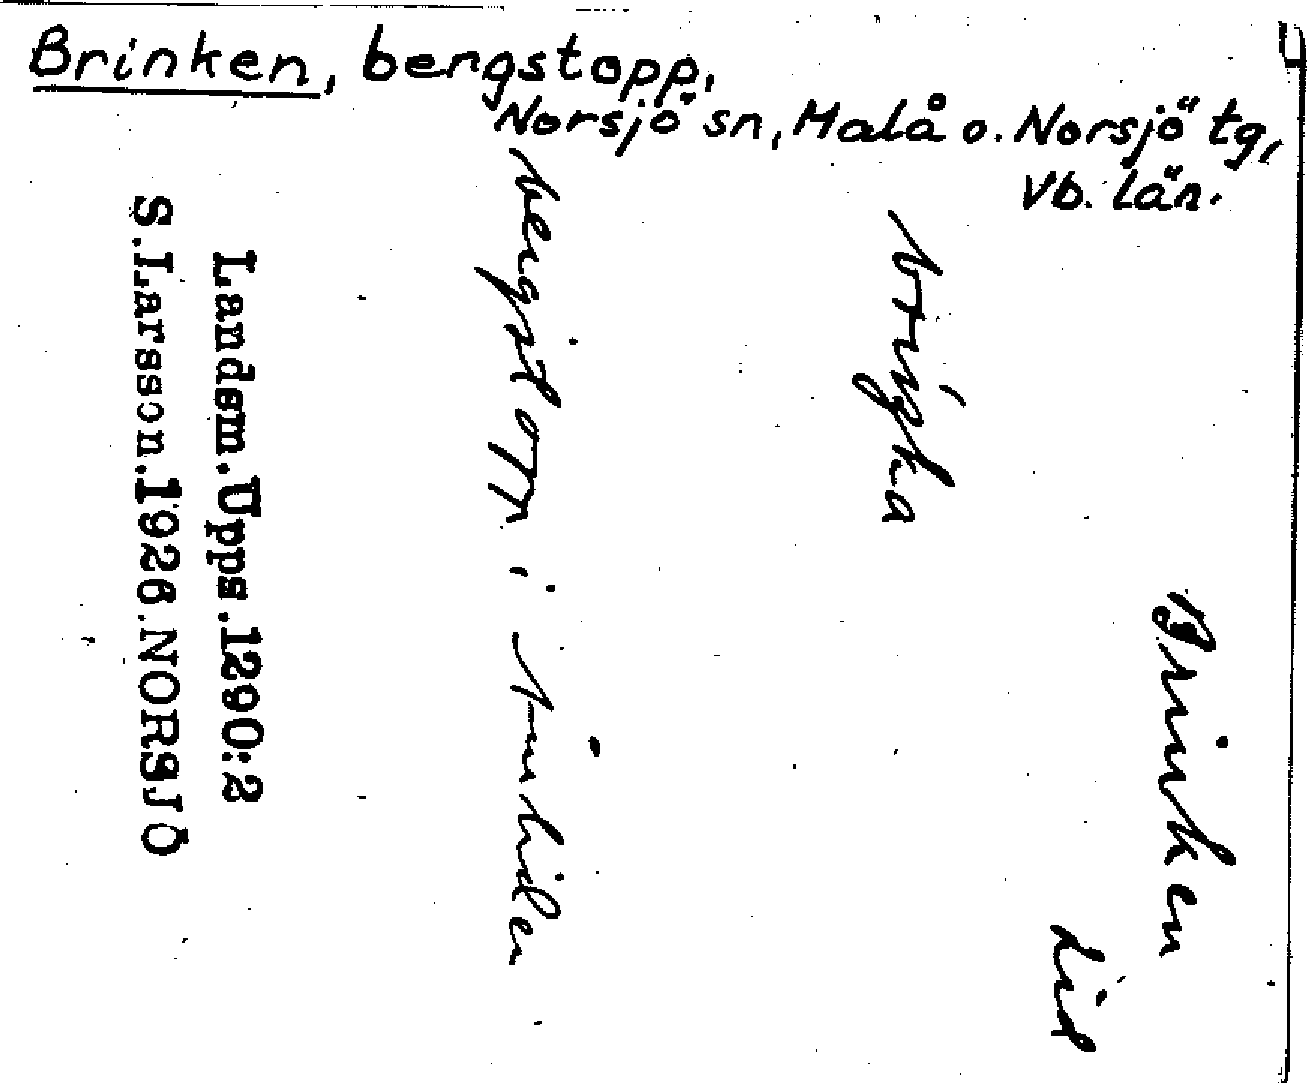 Brinken, bergstopp,
Norsjö sn, Malå o. Norsjö tg,
Vb. län.
Brinken
bergstopp i
Landsm.Upps.1290:2
S.Larsson.1926.NORSJÖ